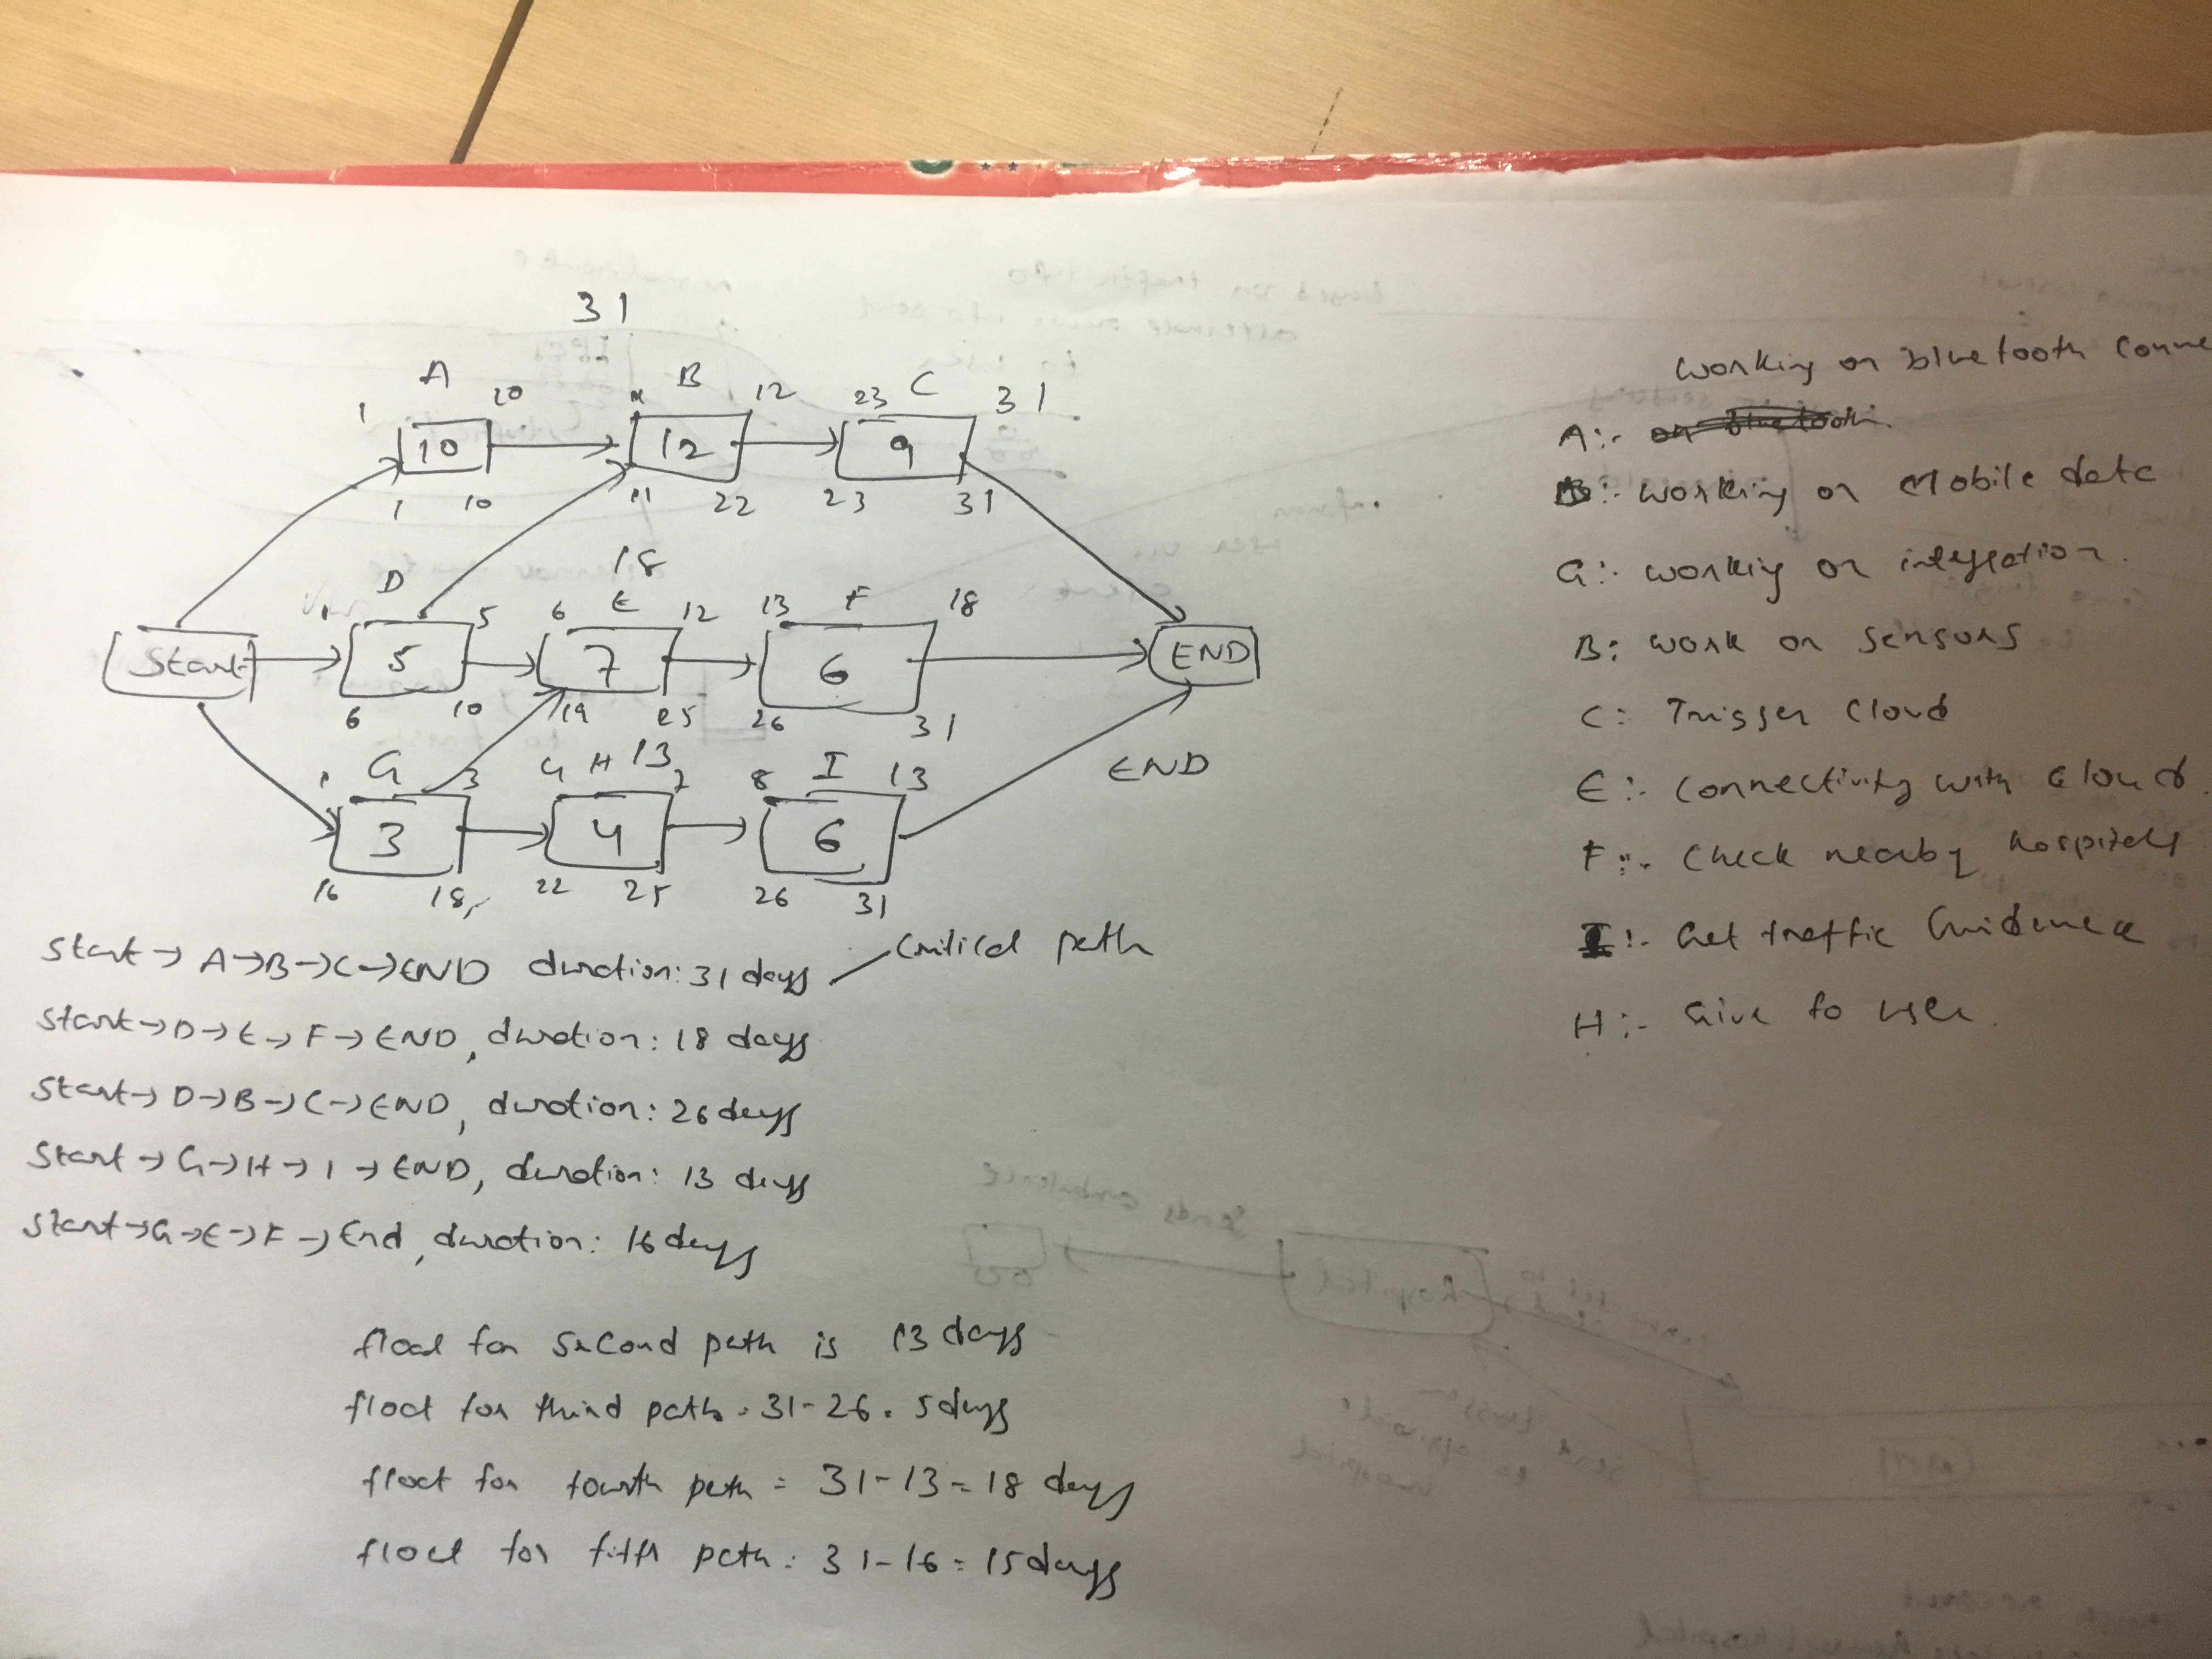 31
A B C
1 10 11 12 23 31
10 12 9
1 10 11 22 23 31
18
D E F
1 5 6 12 13 18
Start 5 7 6 END
6 10 19 25 26 31
13
G H I END
1 3 4 7 8 13
3 4 6
16 18 22 25 26 31
Start → A → B → C → END duration: 31 days critical path
Start → D → E → F → END, duration: 18 days
Start → D → B → C → END, duration: 26 days
Start → G → H → I → END, duration: 13 days
Start → G → E → F → End, duration: 16 days
float for second path is 13 days
float for third path = 31-26 = 5 days
float for fourth path = 31-13 = 18 days
float for fifth path = 31-16 = 15 days
working on bluetooth conne
A:- on bluetooth.
:- working on Mobile data
G:- working on integration.
B: work on sensors
C: Trigger Cloud
E:- connectivity with cloud.
F:- Check nearby hospitals
I:- Get traffic Guidance
H:- Give to user.